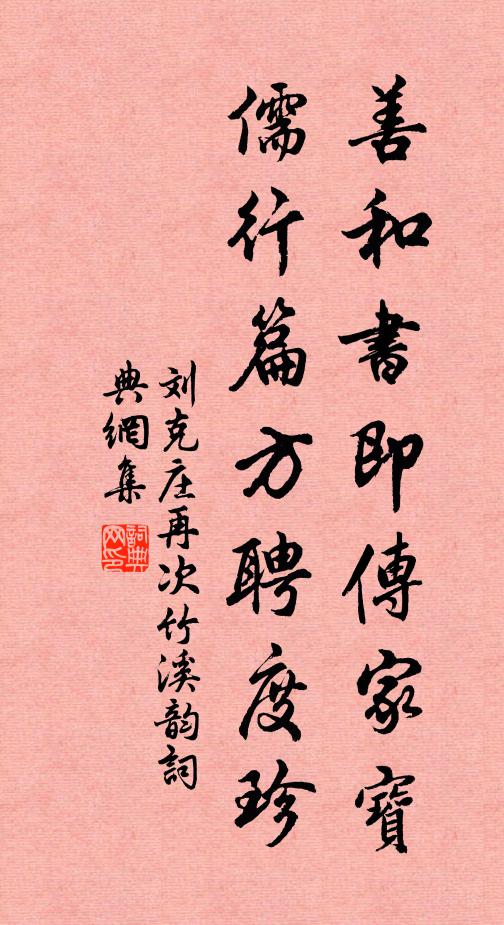 善和書即傳家寶
儒行篇方聘度珍
刘克庄再次竹溪韵詞
典網集
詞典
网印